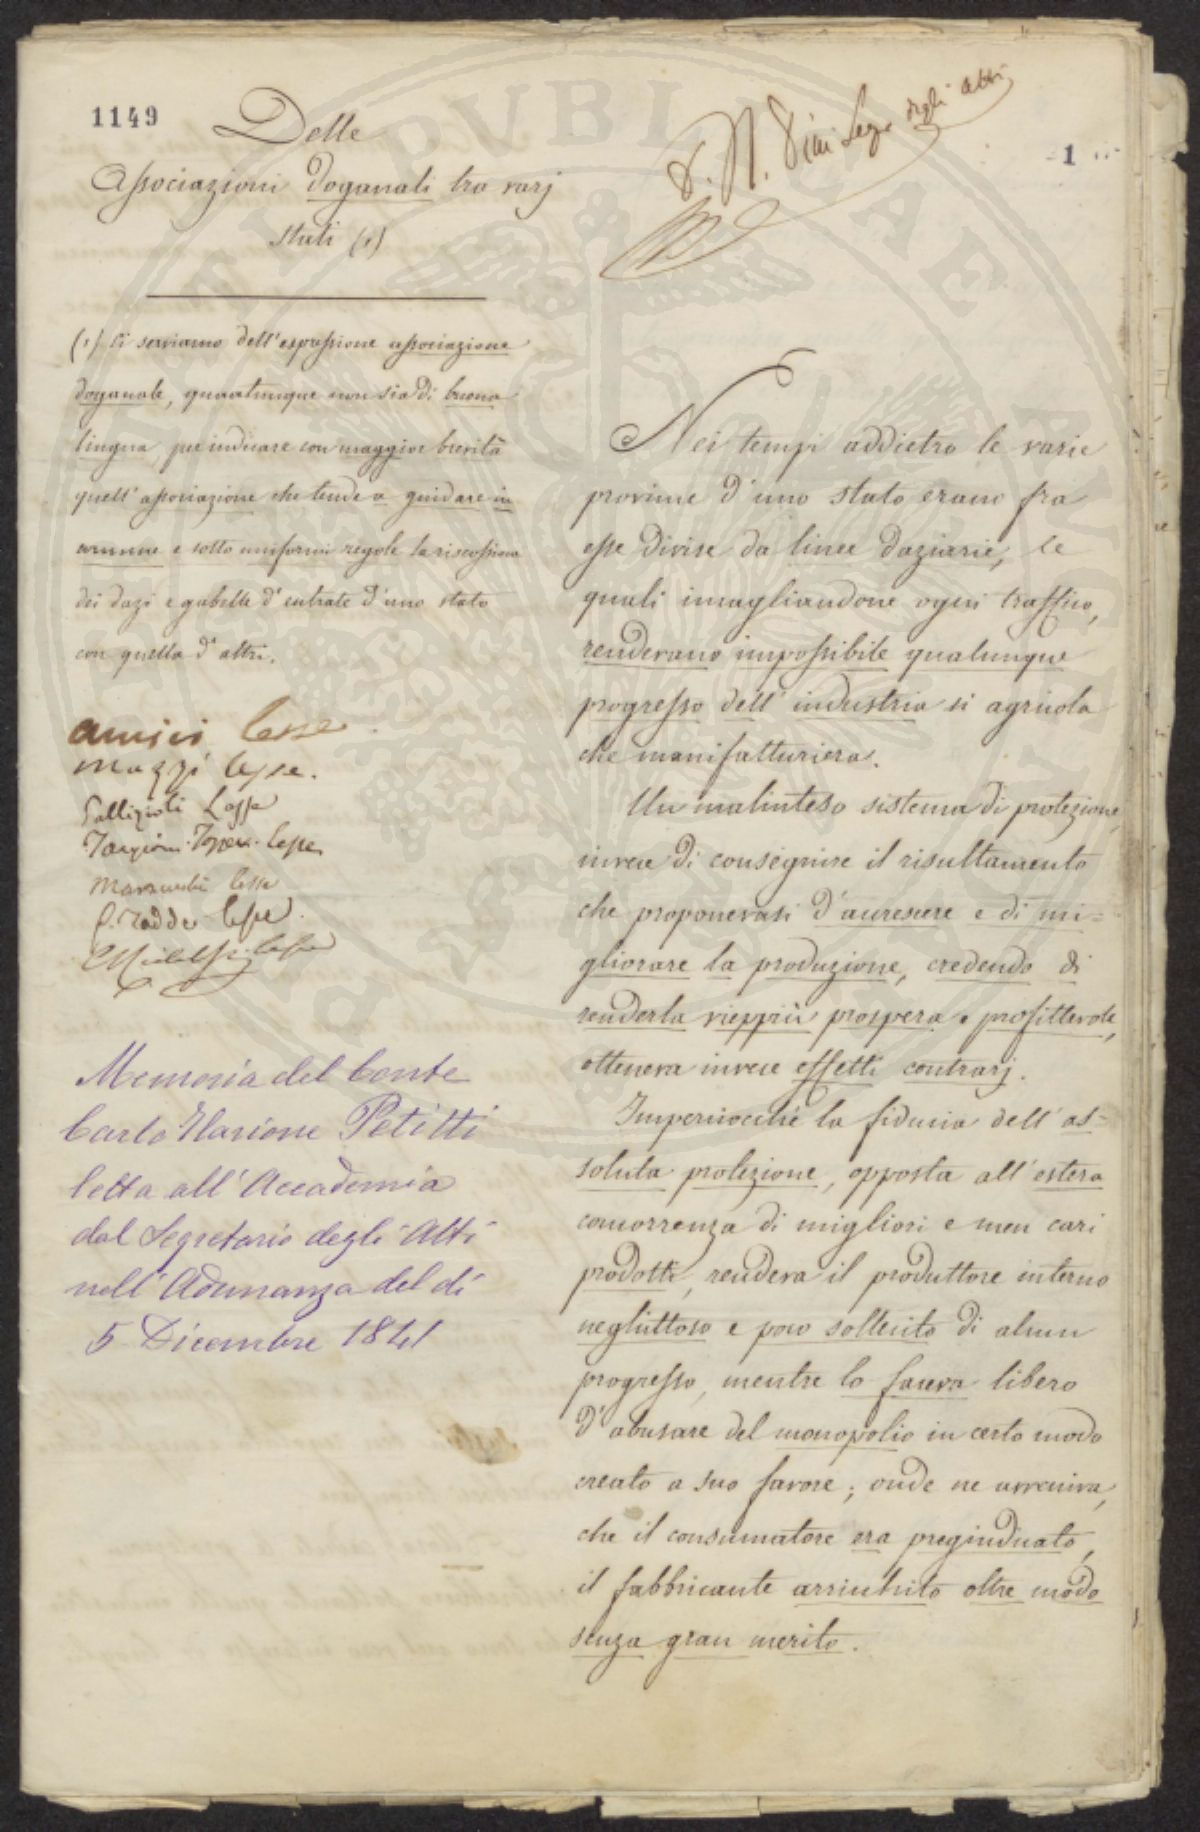 1149
Delle
Associazioni doganali tra varj
stati (1)
1
(1) Ci serviamo dell'espressione associazione
doganale, quantunque non sia di buona
lingua, per indicare con maggior brevità
quell'associazione che tende a guidare in
comune e sotto uniformi regole la riscossione
dei dazi e gabelle d'entrate d'uno stato
con quella d'altri.
Amici lesse
Mazzi lesse.
Gallizioli Lesse
Targioni-Tozzetti lesse
lesse
P. Taddei lesse
lesse
Memoria del Conte
Carlo Ilarione Petitti
letta all'Accademia
dal Segretario degli Atti
nell'Adunanza del dì
5 Dicembre 1841
Nei tempi addietro le varie
provincie d'uno stato erano fra
esse divise da linee daziarie, le
quali inceagliandone ogni traffico,
rendevano impossibile qualunque
progresso dell'industria sì agricola
che manifatturiera.
Un malinteso sistema di protezione,
invece di conseguire il risultamento
che proponevasi d'accrescere e di mi=
gliorare la produzione, credendo di
renderla vieppiù prospera e profittevole,
otteneva invece effetti contrarj.
Imperciocchè la fiducia dell'as-
soluta protezione, opposta all'estera
concorrenza di migliori e men cari
prodotti, rendeva il produttore interno
neghittoso e poco sollecito di alcun
progresso, mentre lo faceva libero
d'abusare del monopolio in certo modo
creato a suo favore; onde ne avveniva,
che il consumatore era pregiudicato,
il fabbricante arricchito oltre modo
senza gran merito.